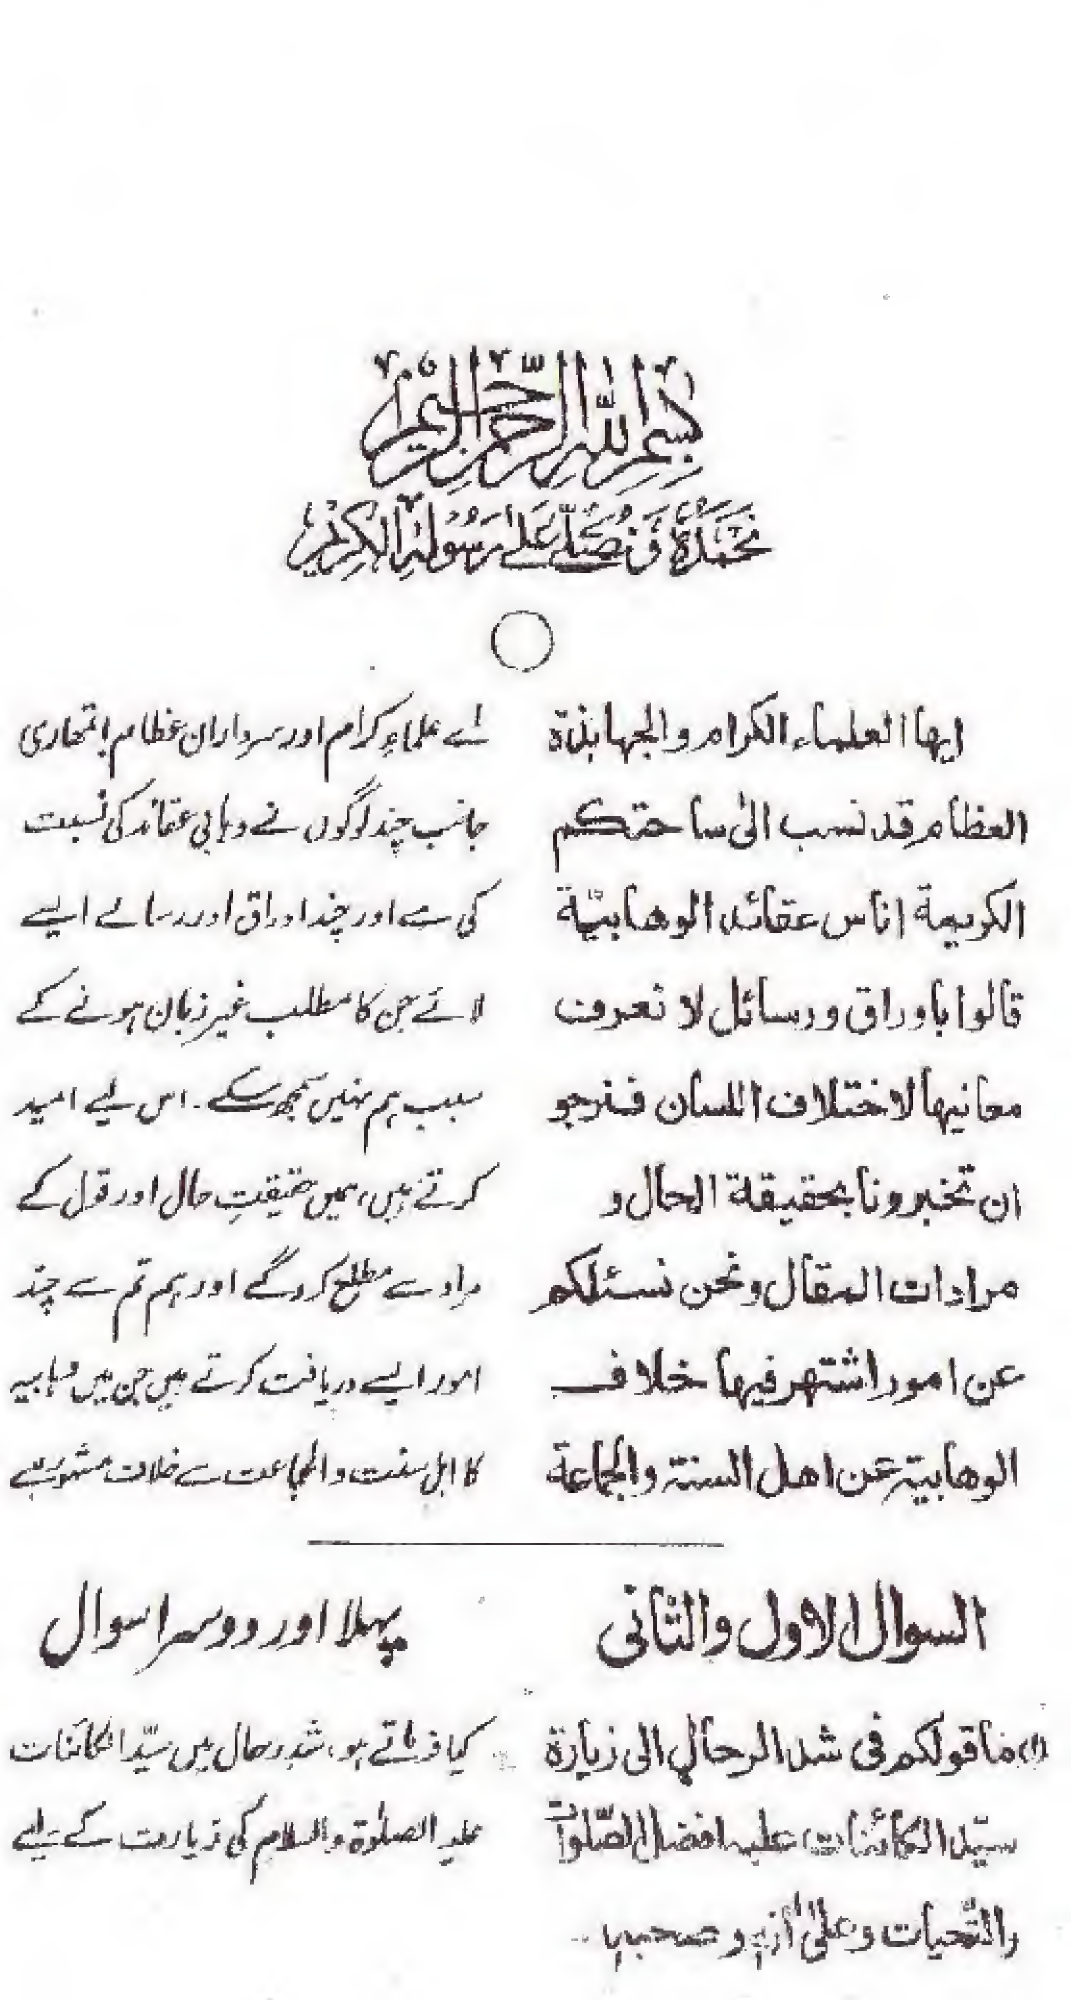 بِسْمِ اللّٰهِ الرَّحْمٰنِ الرَّحِيْمِ
نَحْمَدُهٗ وَنُصَلِّيْ عَلٰى رَسُوْلِهِ الْكَرِيْمِ
ايها العلماء الكرام والجهابذة
العظام قد نسب الى ساحتكم
الكريمة اناس عقائد الوهابيّة
قالوا باوراق ورسائل لا نعرف
معانيها لاختلاف اللسان فنرجو
ان تخبرونا بحقيقة الحال و
مرادات المقال ونحن نسئلكم
عن امور اشتهر فيها خلاف
الوهابية عن اهل السنة والجماعة
اے علماءِ کرام اور سرداران عظام تمہاری
جانب چند لوگوں نے وہابی عقائد کی نسبت
کی ہے اور چند اوراق اور رسالے ایسے
لائے جن کا مطلب غیر زبان ہونے کے
سبب ہم نہیں سمجھ سکے۔ اس لیے امید
کرتے ہیں، ہمیں حقیقتِ حال اور قول کے
مراد سے مطلع کرو گے اور ہم تم سے چند
امور ایسے دریافت کرتے ہیں جن میں وہابیہ
کا اہل سنت والجماعت سے خلاف مشہور ہے
السوال الاول والثانى
(۱) ما قولكم فى شد الرحال الى زيارة
سيّد الكائنات عليه افضل الصّلوات
والتّحيات وعلىٰ اٰله وصحبه
پہلا اور دوسرا سوال
کیا فرماتے ہو، شدِ رحال میں سیّد الکائنات
علیہ الصلوٰۃ والسلام کی زیارت کے لیے